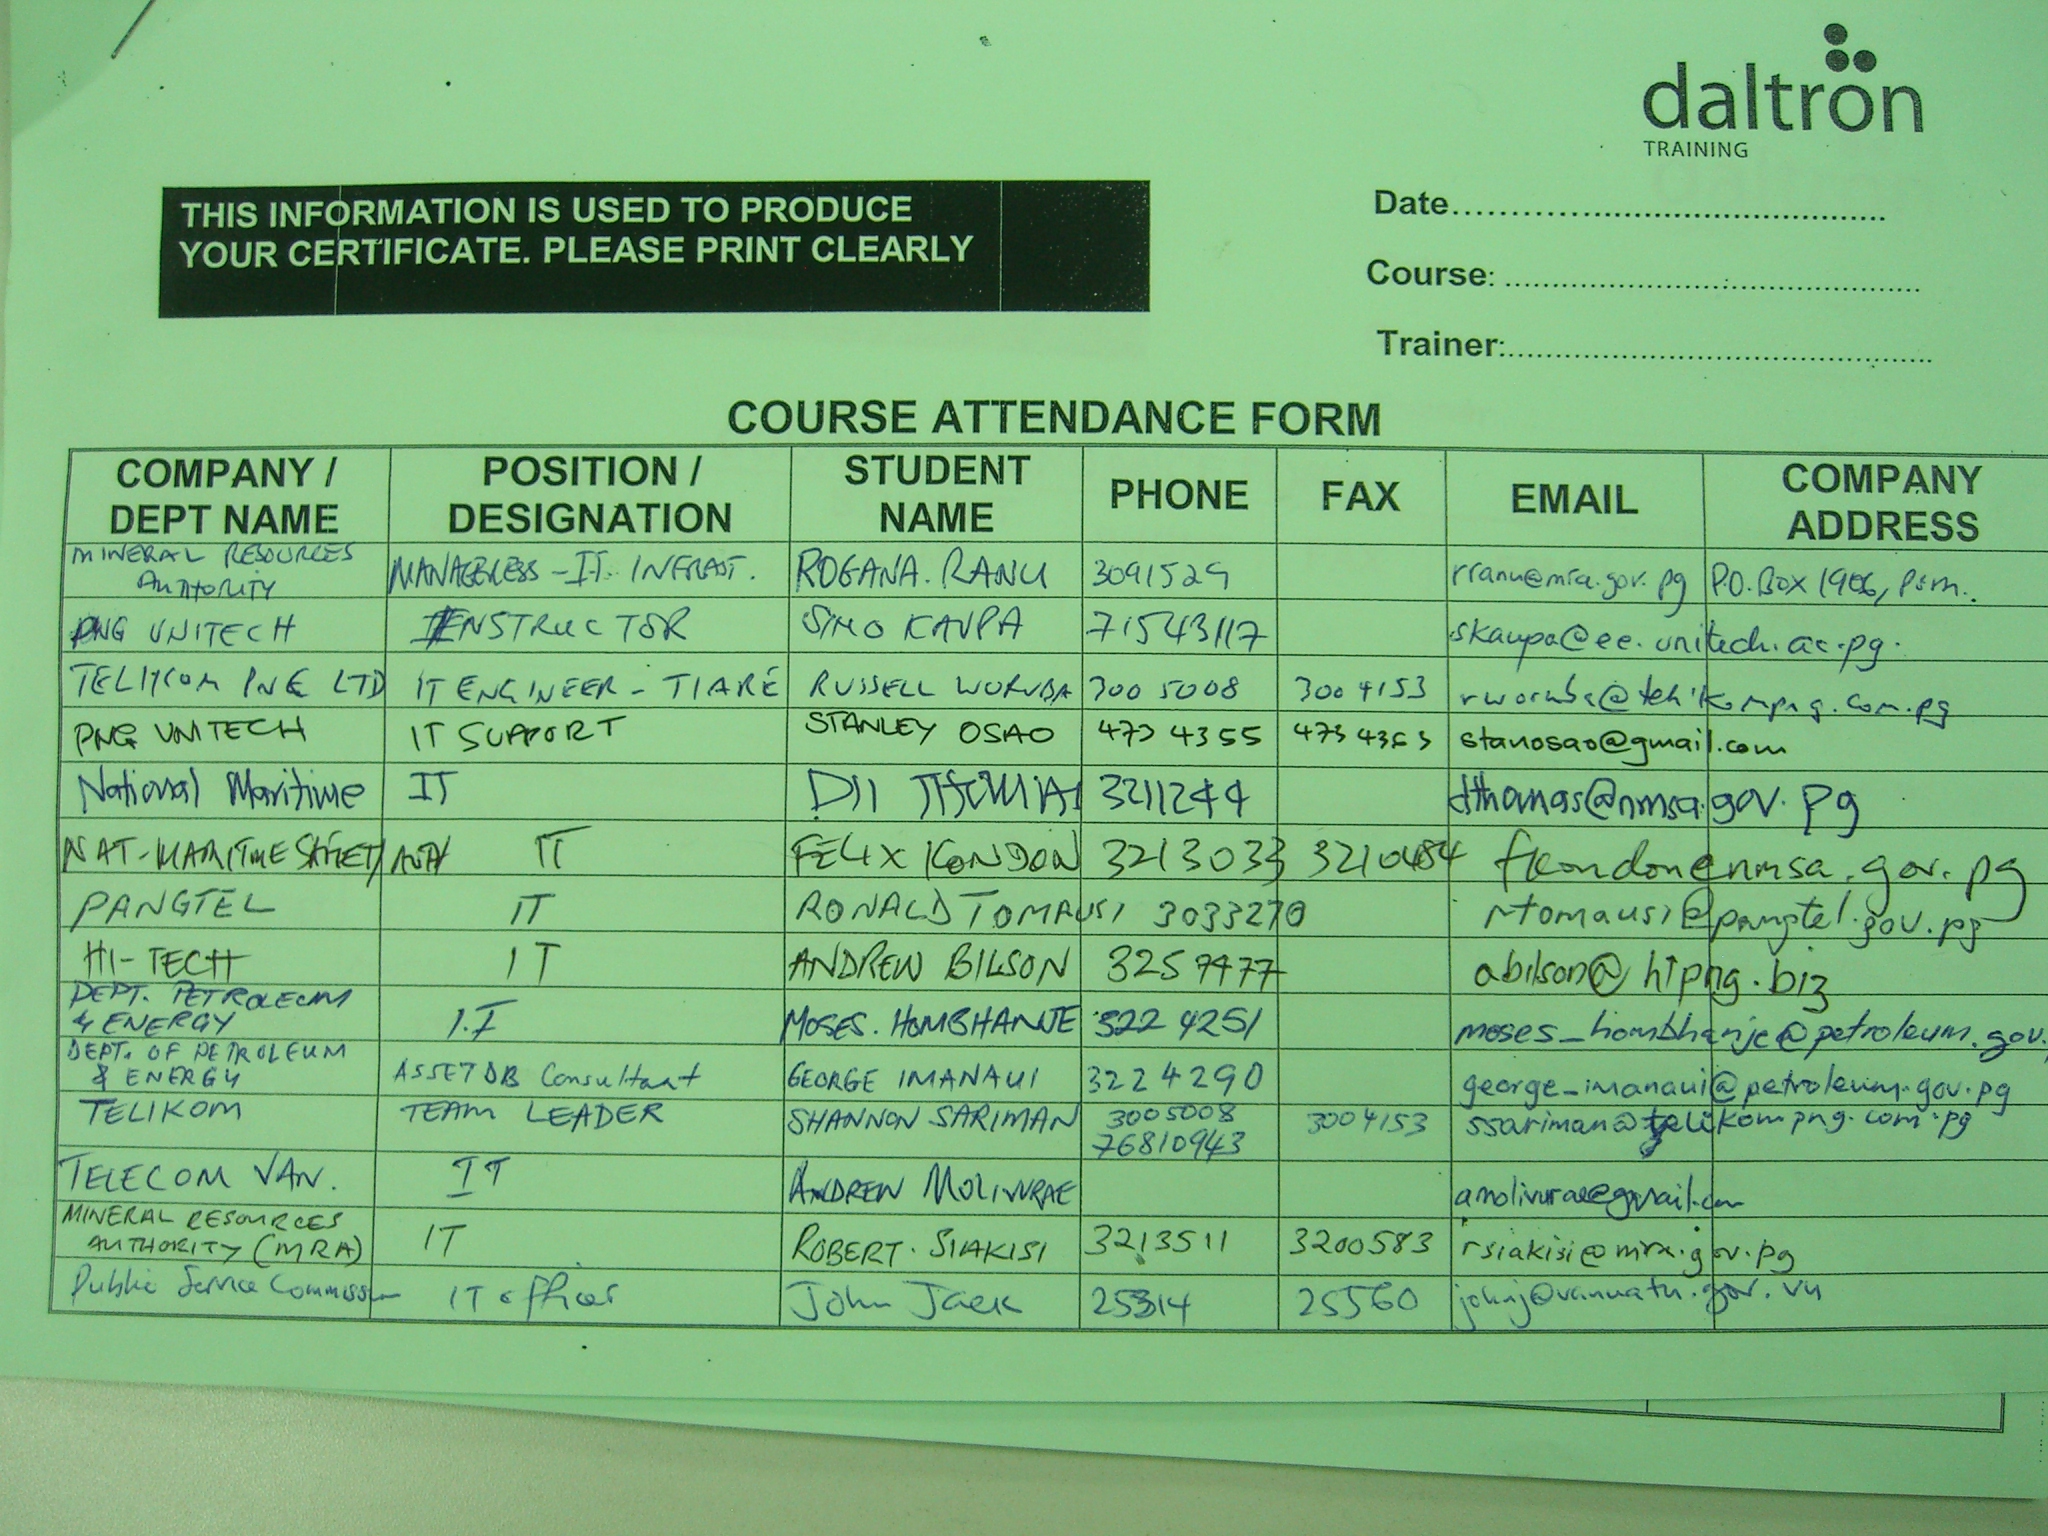 daltron
TRAINING
THIS INFORMATION IS USED TO PRODUCE
YOUR CERTIFICATE. PLEASE PRINT CLEARLY
Date
Course:
Trainer:
COURSE ATTENDANCE FORM
COMPANY / DEPT NAME POSITION / DESIGNATION STUDENT NAME PHONE FAX EMAIL COMPANY ADDRESS
MINERAL RESOURCES AUTHORITY - IT INFRAST. ROGANA. RANU 3091529 rranu@mra.gov.pg P.O. Box 1906, Pom.
PNG UNITECH INSTRUCTOR SIMO KAUPA 71543117 skaupa@ee.unitech.ac.pg.
PNG LTD IT ENGINEER - TIARE RUSSELL WORUBA 300 5008 300 4153
PNG UNITECH IT SUPPORT STANLEY OSAO 473 4355 473 4363 stanosao@gmail.com
National Maritime IT 3211244 dthomas@nmsa.gov.pg
NAT-MARITIME SAFETY AUTH IT FELIX KONDON 3213033 3210484 fkondon@nmsa.gov.pg
PANGTEL IT RONALD TOMAUSI 3033270 rtomausi@pangtel.gov.pg
HI-TECH IT ANDREW BILSON 3257477 abilson@hipng.biz
DEPT. PETROLEUM & ENERGY I.T MOSES. HOMBHANJE 322 4251 moses_hombhanje@petroleum.gov.
DEPT. OF PETROLEUM & ENERGY ASSET DB Consultant GEORGE IMANAUI 322 4290 george_imanaui@petroleum.gov.pg
TELIKOM TEAM LEADER SHANNON SARIMAN 3005008 3004153 ssariman@telikompng.com.pg
76810943
TELECOM VAN. IT ANDREW MOLIVURAE amolivurae@gmail.com
MINERAL RESOURCES AUTHORITY (MRA) IT ROBERT. SIAKISI 3213511 3200583 rsiakisi@mra.gov.pg
Public Service Commission IT officer John Jack 25314 25560 johnj@vanuatu.gov.vu